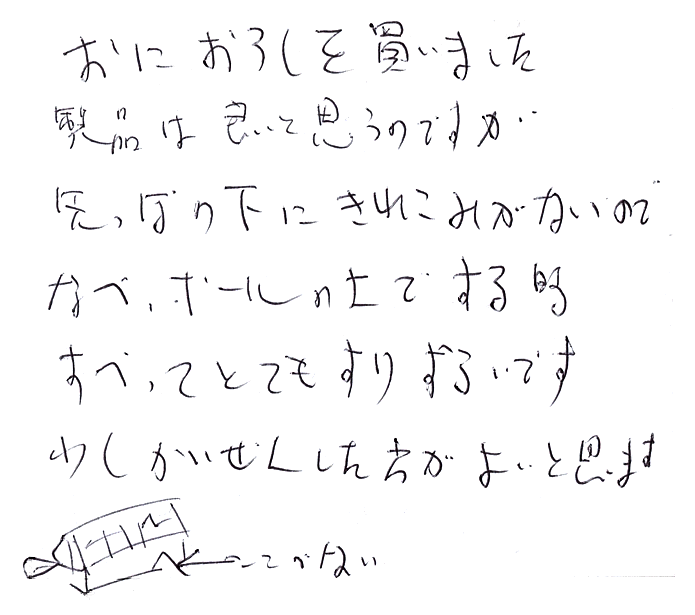 おにおろしを買いました
製品は良いと思うのですが
先っぽの下にきれこみがないので
なべ、ボールの上でする時
すべってとてもすりずらいです
少しかいぜんした方がよいと思います
ここがない